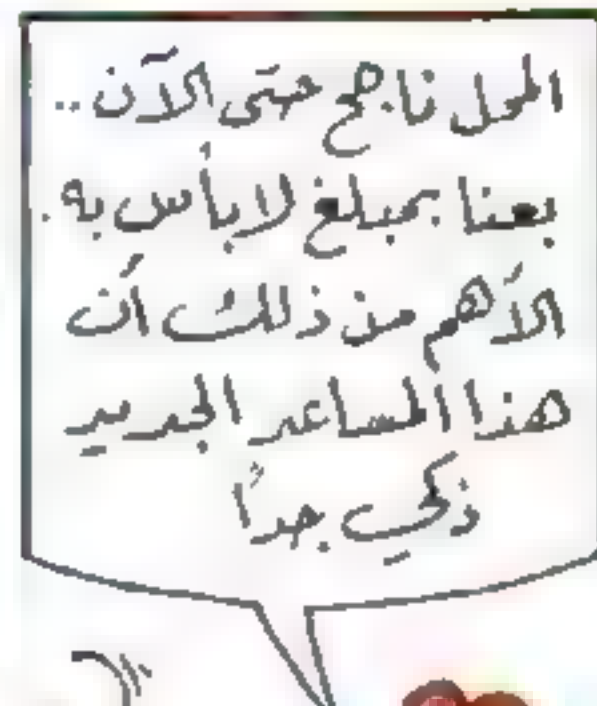 المول ناجح حتى الآن..
بعنا بمبلغ لا بأس به.
الأهم من ذلك أن
هذا المساعد الجديد
ذكي جداً